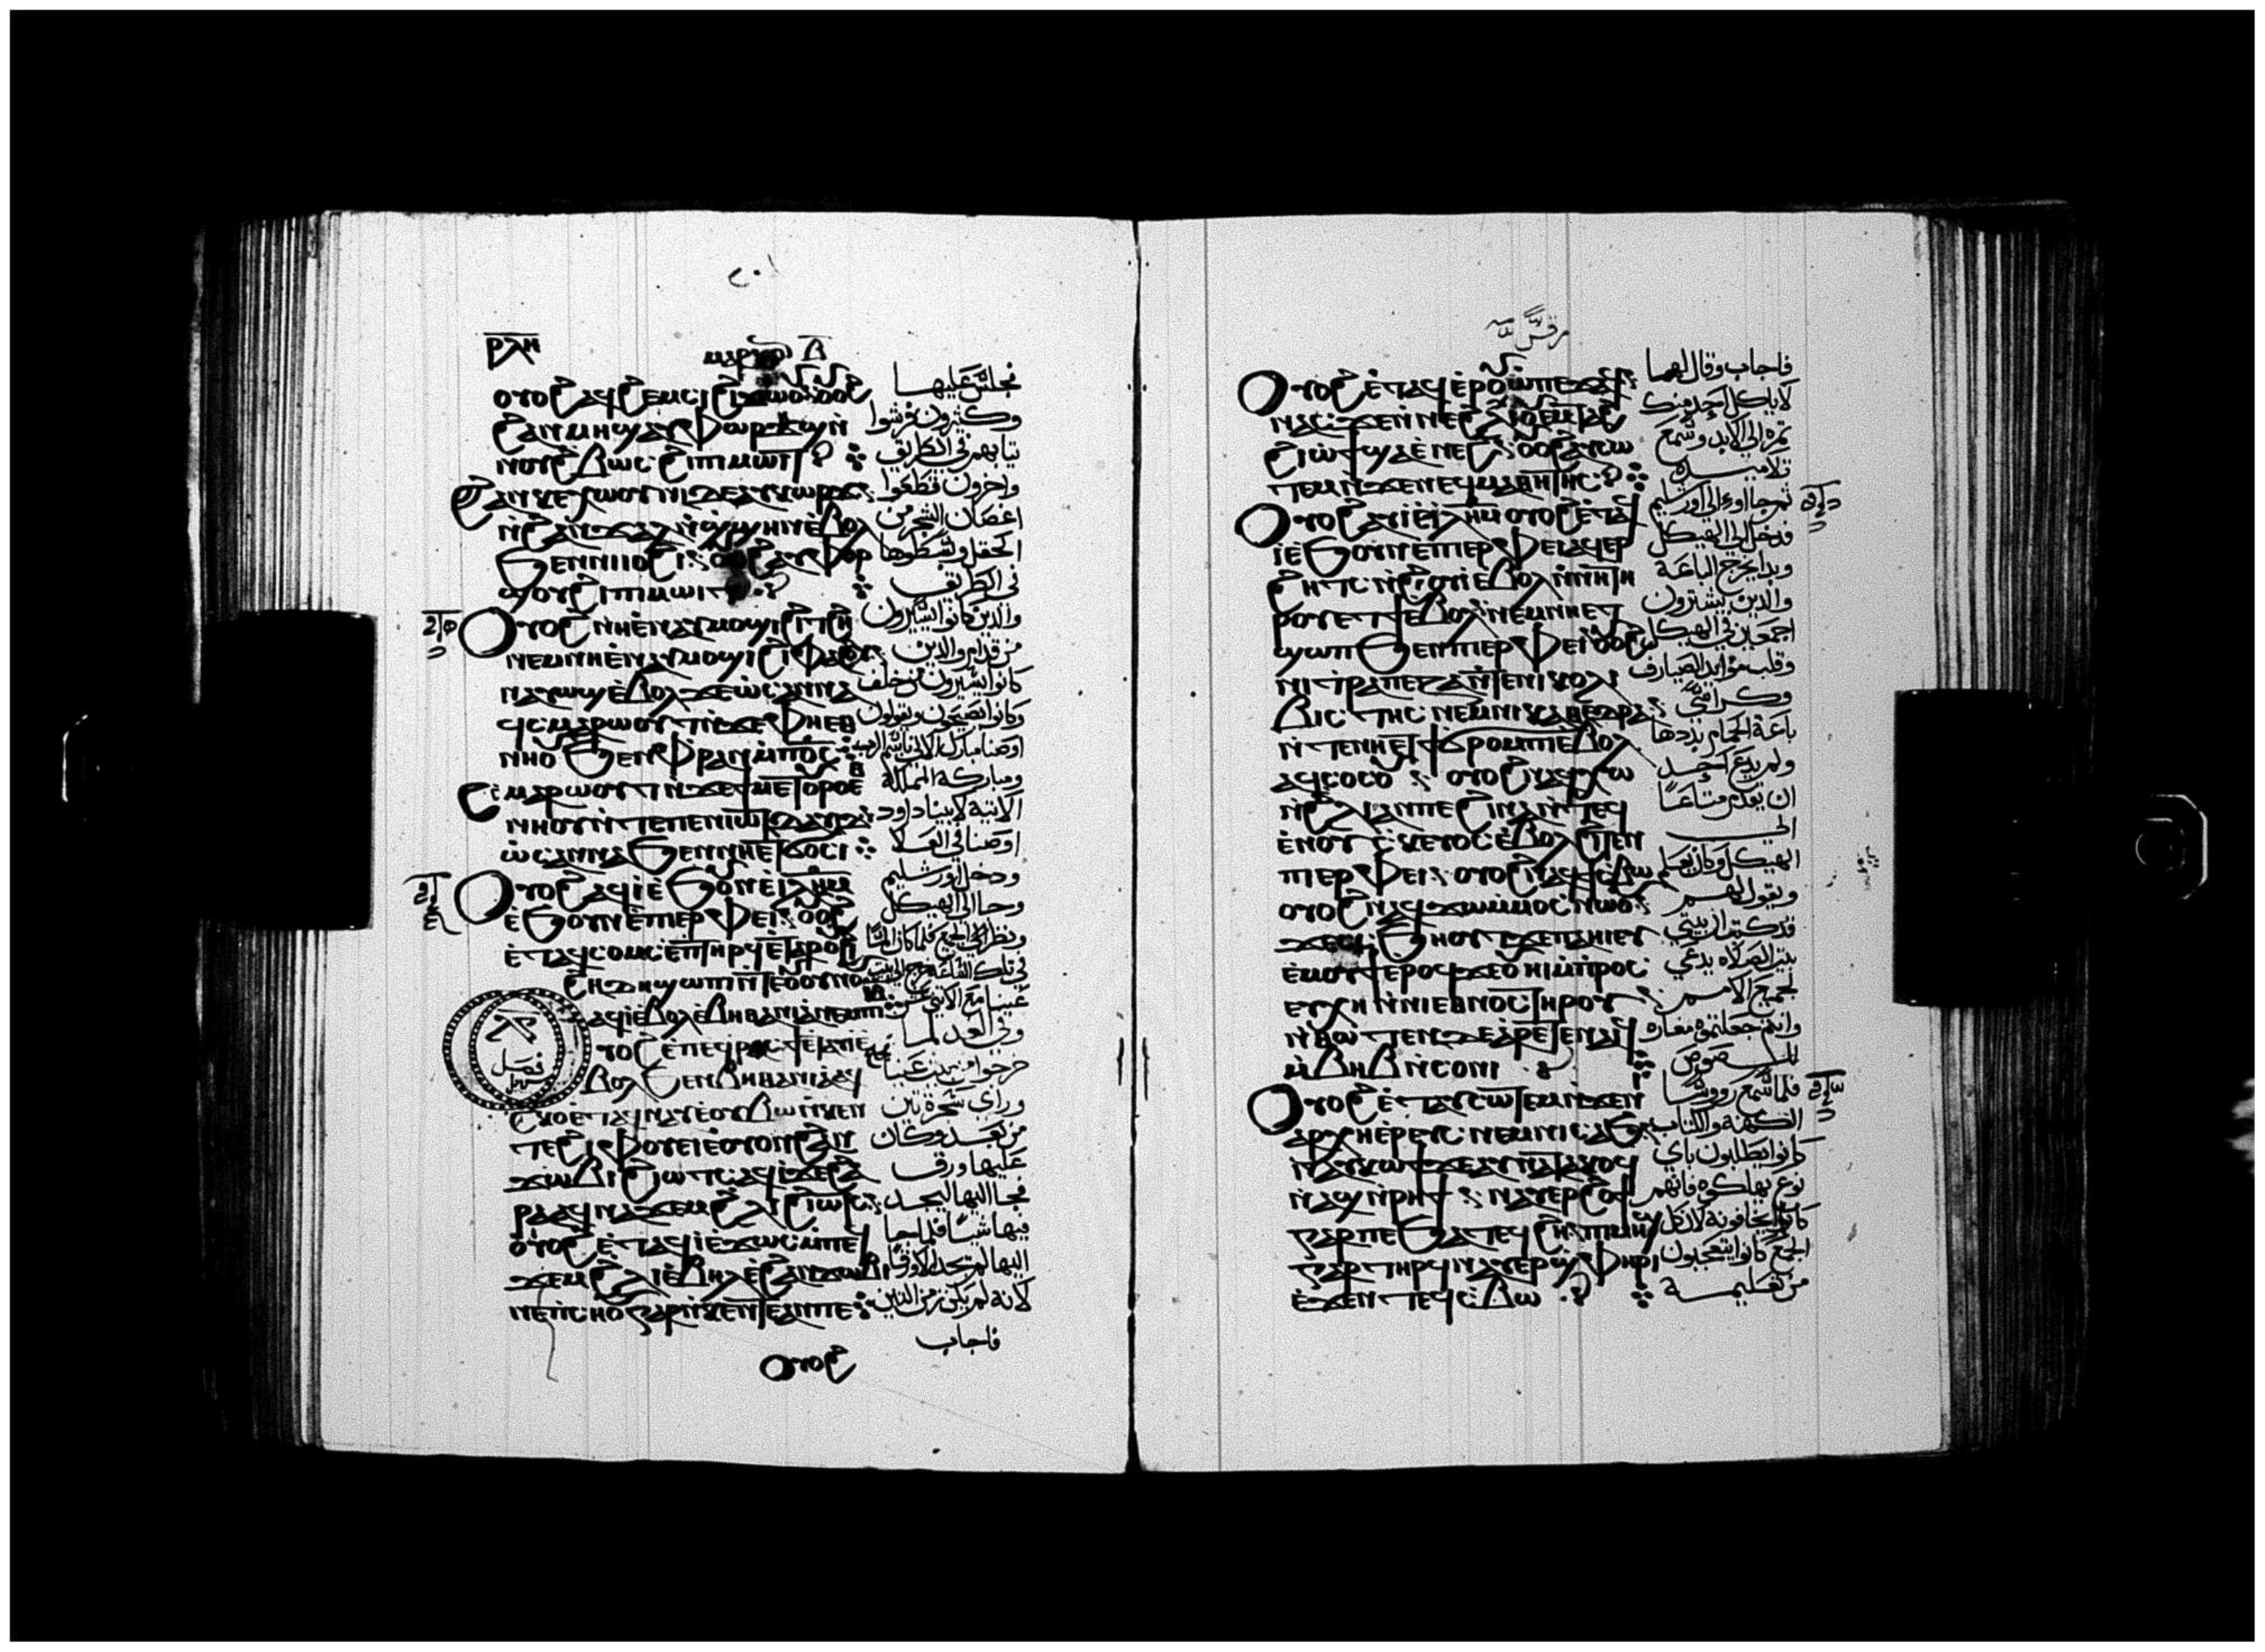 ⲣⲗⲏ
ⲟⲩⲟϩ ⲁϥϩⲉⲙⲥⲓ ϩⲓϫⲱⲟⲩ ⲟⲩⲟϩ
ϩⲁⲛⲙⲏϣ ⲁⲩⲫⲱⲣϣ ⲛ
ⲛⲟⲩϩⲃⲱⲥ ϩⲓⲡⲓⲙⲱⲓⲧ
ϩⲁⲛⲕⲉⲭⲱⲟⲩⲛⲓ ⲇⲉ ⲁⲩⲕⲱⲣϫ
ⲛϩⲁⲛϫⲁⲗ ⲛϣϣⲏⲛ ⲉⲃⲟⲗ
ϧⲉⲛⲛⲓⲓⲟϩⲓ ⲟⲩⲟϩ ⲁⲩⲫⲟⲣ
ϣⲟⲩ ϩⲓⲡⲓⲙⲱⲓⲧ
ⲟⲩⲟϩ ⲛⲏ ⲉⲛⲁⲩⲙⲟϣⲓ ϩⲓⲧϩⲏ
ⲛⲉⲙ ⲛⲏ ⲉⲛⲁⲩⲙⲟϣⲓ ϩⲓⲫⲁϩⲟⲩ
ⲛⲁⲩⲱϣ ⲉⲃⲟⲗ ϫⲉ ⲱⲥⲁⲛⲛⲁ
ϥⲥⲙⲁⲣⲱⲟⲩⲧ ⲛϫⲉ ⲫⲏⲉⲑ
ⲛⲏⲟⲩ ϧⲉⲛ ⲫⲣⲁⲛ ⲙⲡⲟⲥ
ⲥⲥⲙⲁⲣⲱⲟⲩⲧ ⲛϫⲉ ϯⲙⲉⲧⲟⲩⲣⲟ ⲉ
ⲛⲏⲟⲩ ⲛⲧⲉ ⲡⲉⲛⲓⲱⲧ ⲇⲁⲩⲓⲇ
ⲱⲥⲁⲛⲛⲁ ϧⲉⲛ ⲛⲏⲉⲧϭⲟⲥⲓ
ⲟⲩⲟϩ ⲁϥⲓ ⲉϧⲟⲩⲛ ⲉⲓⲗⲏⲙ
ⲉϧⲟⲩⲛ ⲉⲡⲓⲉⲣⲫⲉⲓ ⲟⲩⲟϩ
ⲉⲧⲁϥⲥⲟⲙⲥ ⲉⲡⲧⲏⲣϥ ⲉⲧⲁⲣⲟⲩϩⲓ
ϩⲏⲇⲏ ϣⲱⲡⲓ ⲛⲧⲉ ϯⲟⲩⲛⲟⲩ
ⲁϥⲓ ⲉⲃⲟⲗ ⲉⲃⲏⲑⲁⲛⲓⲁ ⲛⲉⲙ ⲡⲓⲓⲃ
ⲟⲩⲟϩ ⲉⲡⲉϥⲣⲁⲥϯ ⲉⲧⲁⲩⲓ ⲉ
ⲃⲟⲗ ϧⲉⲛ ⲃⲏⲑⲁⲛⲓⲁ ⲁϥ
ϩⲕⲟ ⲉⲧⲁϥⲛⲁⲩ ⲉⲟⲩⲃⲱ ⲛⲕⲉⲛ
ⲧⲉ ϩⲓⲫⲟⲩⲉⲓ ⲉⲟⲩⲟⲛ ϩⲁⲛ
ϫⲱⲃⲓ ϩⲓⲱⲧⲥ ⲁϥⲓ ϫⲉ ϩⲁ
ⲣⲁ ϥⲛⲁϫⲉⲙ ϩⲗⲓ ϩⲓⲱⲧⲥ
ⲟⲩⲟϩ ⲉⲧⲁϥⲓ ⲉϫⲱⲥ ⲙⲡⲉϥ
ϫⲉⲙ ϩⲗⲓ ⲉⲃⲏⲗ ⲉϩⲁⲛϫⲱⲃⲓ
ⲛⲉ ⲛⲥⲏⲟⲩ ⲅⲁⲣ ⲛⲕⲉⲛⲧⲉ ⲁⲛ ⲡⲉ
ⲟⲩⲟϩ
فجلس عليها
وكثيرون فرشوا
تيابهم في الطريق
واخرون قطعوا
اغصان الشجر من
الحقل وبسطوها
في الطريق
والدين كانوا يسيرون
من قدام والدين
كانوا يسيرون من خلف
وكانوا يصيحون ويقولون
اوصنا مبارك الاتي باسم الرب
ومباركه المملكة
الاتية لابينا داود
اوصنا في العلا
ودخل يورشليم
وجا الي الهيكل
ونظر الي الجميع فلما كان المسا
في تلك الساعه خرج الي بيت
عنيا مع الاثني عشر
وفي الغد لما
خرجوا من بيت عنيا جاع
وراي شجرة تين
من بعد وكان
عليها ورق
فجا اليها ليجد
فيها شيا فلما جا
اليها لم يجد الا ورقا
لانه لم يكن زمن التين
فاجاب
مرقس
ⲟⲩⲟϩ ⲉⲧⲁϥⲉⲣⲟⲩⲱ ⲡⲉϫⲁϥ
ⲛⲁⲥ ϫⲉ ⲛⲛⲉ ϩⲗⲓ ⲟⲩⲉⲙ ⲟⲩⲧⲁϩ
ϩⲓⲱϯ ϣⲁ ⲉⲛⲉϩ ⲟⲩⲟϩ ⲁⲩⲥⲱ
ⲧⲉⲙ ⲛϫⲉ ⲛⲉϥⲙⲁⲑⲏⲧⲏⲥ
ⲟⲩⲟϩ ⲁⲩⲓ ⲉⲓⲗⲏⲙ ⲟⲩⲟϩ ⲉⲧⲁϥ
ⲓ ⲉϧⲟⲩⲛ ⲉⲡⲓⲉⲣⲫⲉⲓ ⲁϥⲉⲣ
ϩⲏⲧⲥ ⲛϩⲓⲟⲩⲓ ⲉⲃⲟⲗ ⲛⲛⲏ
ⲉⲧϯ ⲉⲃⲟⲗ ⲛⲉⲙ ⲛⲏⲉⲧ
ϣⲱⲡ ϧⲉⲛ ⲡⲓⲉⲣⲫⲉⲓ ⲟⲩⲟϩ
ⲛⲓⲧⲣⲁⲡⲉⲍⲁ ⲛⲧⲉ ⲛⲓⲕⲟⲗⲗⲩ
ⲃⲓⲥⲧⲏⲥ ⲛⲉⲙ ⲛⲓⲕⲁⲑⲉⲇⲣⲁ
ⲛⲧⲉ ⲛⲏⲉⲧϯ ϭⲣⲟⲙⲡⲓ ⲉⲃⲟⲗ
ⲁϥϭⲟϭⲟⲩ ⲟⲩⲟϩ ⲛⲁϥⲭⲱ
ⲛϩⲗⲓ ⲁⲛ ⲡⲉ ϩⲓⲛⲁ ⲛⲧⲉϥ
ⲉⲛ ⲟⲩⲥⲕⲉⲩⲟⲥ ⲉⲃⲟⲗ ϩⲓⲧⲉⲛ
ⲡⲓⲉⲣⲫⲉⲓ ⲟⲩⲟϩ ⲛⲁϥϯⲥⲃⲱ
ⲟⲩⲟϩ ⲛⲁϥϫⲱ ⲙⲙⲟⲥ ⲛⲱⲟⲩ
ϫⲉ ⲥϧⲏⲟⲩⲧ ϫⲉ ⲡⲁⲏⲓ ⲉⲩ
ⲉⲙⲟⲩϯ ⲉⲣⲟϥ ϫⲉ ⲟⲩⲏⲓ ⲙⲡⲣⲟⲥ
ⲉⲩⲭⲏ ⲛⲛⲓⲉⲑⲛⲟⲥ ⲧⲏⲣⲟⲩ
ⲛⲑⲱⲧⲉⲛ ⲇⲉ ⲁⲣⲉⲧⲉⲛⲁⲓϥ
ⲙⲃⲏⲃ ⲛⲥⲟⲛⲓ
ⲟⲩⲟϩ ⲉⲧⲁⲩⲥⲱⲧⲉⲙ ⲛϫⲉ ⲛⲓ
ⲁⲣⲭⲏⲉⲣⲉⲩⲥ ⲛⲉⲙ ⲛⲓⲥⲁϧ
ⲛⲁⲩⲕⲱϯ ϫⲉ ⲁⲩⲛⲁⲧⲁⲕⲟϥ
ⲛⲁϣ ⲛⲣⲏϯ ⲛⲁⲩⲉⲣϩⲟϯ
ⲅⲁⲣ ⲡⲉ ϧⲁⲧⲉϥϩⲏ ⲡⲓⲙⲏϣ
ⲅⲁⲣ ⲧⲏⲣϥ ⲛⲁⲩⲉⲣϣⲫⲏⲣⲓ
ⲉϫⲉⲛ ⲧⲉϥⲥⲃⲱ
فاجاب وقال لهما
لا ياكل احد منك
تمره الي الابد وسمع
تلاميده
ثم جااو الي اورشليم
فدخل الي الهيكل
وبدا يخرج الباعة
والدين يشترون
اجمعين في الهيكل
وقلب موايد الصيارف
وكراسي
باعة الحمام بددها
ولم يدع احد
ان يقدم متاعا
الي
الهيكل وكان يعلم
ويقول لهم
قد كتب ان بيتي
بيت الصلاه يدعي
لجميع الامم
وانتم جعلتموه مغاره
للصوص
فلما سمع روسا
الكهنة والكتاب
كانوا يطلبون باي
نوع يهلكوه فانهم
كانوا يخافونه لان كل
الجمع كانوا يتعجبون
من تعليمه